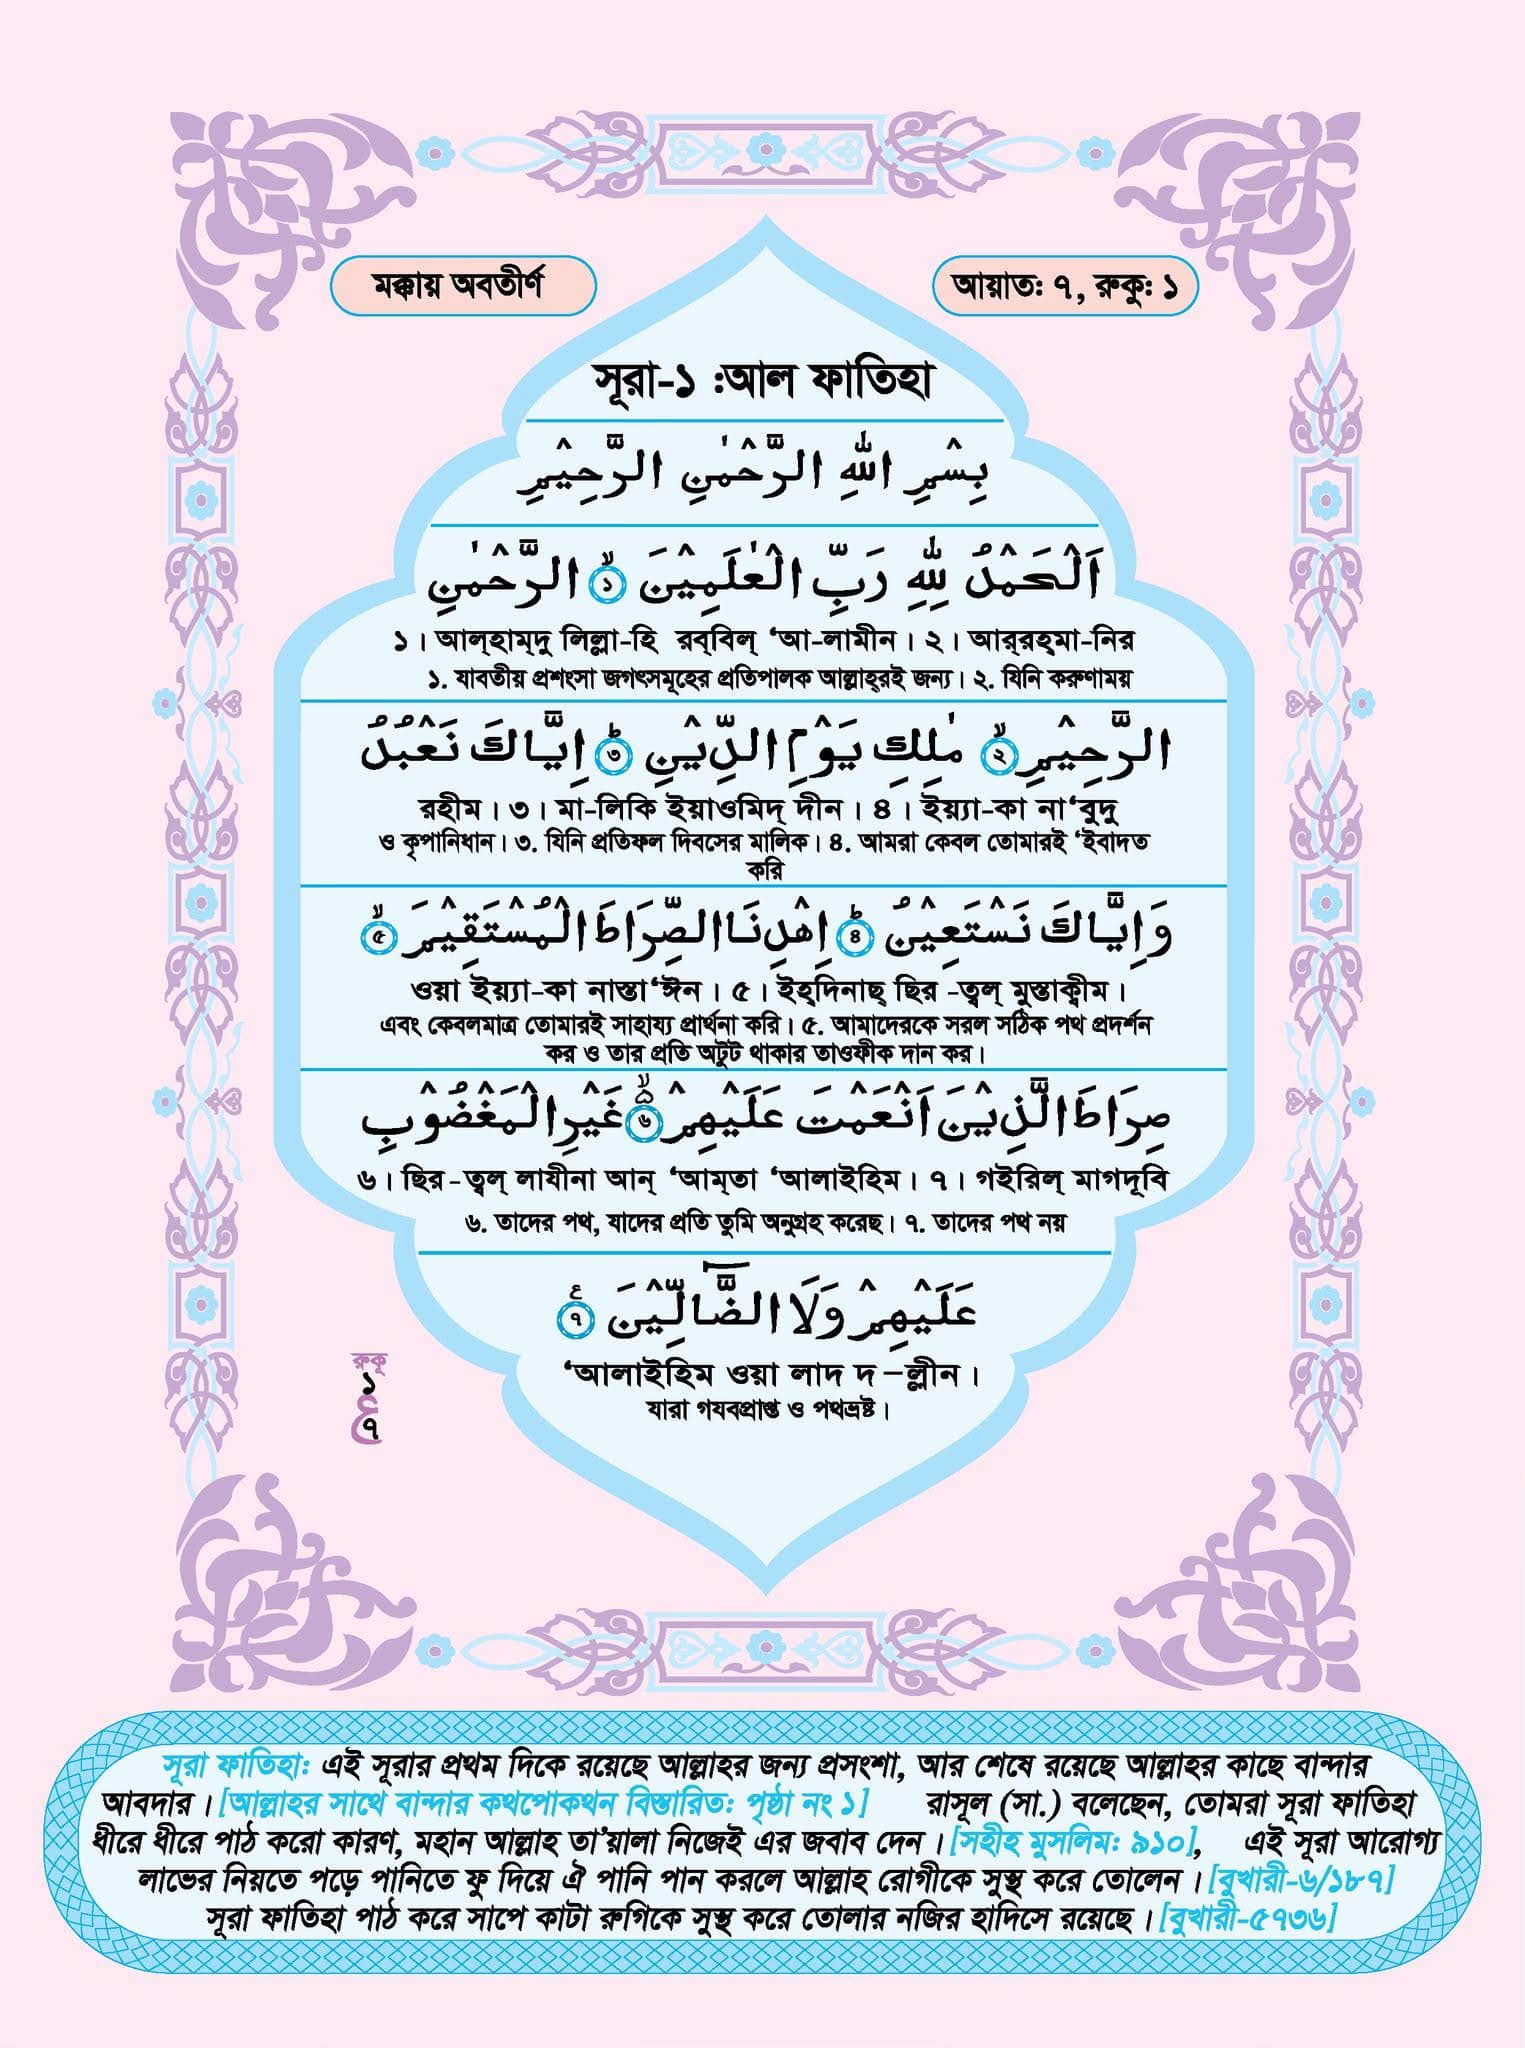 মক্কায় অবতীর্ণ
আয়াত: ৭, রুকু: ১
সূরা-১ :আল ফাতিহা
بِسْمِ اللّٰهِ الرَّحْمٰنِ الرَّحِيْمِ
اَلْحَمْدُ لِلّٰهِ رَبِّ الْعٰلَمِيْنَ ۙ﴿১﴾ الرَّحْمٰنِ
১। আল্‌হাম্‌দু লিল্লা-হি রব্‌বিল্ ‘আ-লামীন। ২। আর্‌রহ্‌মা-নির
১. যাবতীয় প্রশংসা জগৎসমূহের প্রতিপালক আল্লাহ্‌রই জন্য। ২. যিনি করুণাময়
الرَّحِيْمِ ۙ﴿২﴾ مٰلِكِ يَوْمِ الدِّيْنِ ؕ﴿৩﴾ اِيَّاكَ نَعْبُدُ
রহীম। ৩। মা-লিকি ইয়াওমিদ্ দীন। ৪। ইয়্যা-কা না‘বুদু
ও কৃপানিধান। ৩. যিনি প্রতিফল দিবসের মালিক। ৪. আমরা কেবল তোমারই ‘ইবাদত
করি
وَاِيَّاكَ نَسْتَعِيْنُ ؕ﴿৪﴾ اِهْدِنَا الصِّرَاطَ الْمُسْتَقِيْمَ ۙ﴿৫﴾
ওয়া ইয়্যা-কা নাস্তা‘ঈন। ৫। ইহ্‌দিনাছ্ ছির -ত্বল্ মুস্তাক্বীম।
এবং কেবলমাত্র তোমারই সাহায্য প্রার্থনা করি। ৫. আমাদেরকে সরল সঠিক পথ প্রদর্শন
কর ও তার প্রতি অটুট থাকার তাওফীক দান কর।
صِرَاطَ الَّذِيْنَ اَنْعَمْتَ عَلَيْهِمْ ۙ۵﴿৬﴾ غَيْرِ الْمَغْضُوْبِ
৬। ছির-ত্বল্ লাযীনা আন্ ‘আম্‌তা ‘আলাইহিম। ৭। গইরিল্ মাগদূবি
৬. তাদের পথ, যাদের প্রতি তুমি অনুগ্রহ করেছ। ৭. তাদের পথ নয়
عَلَيْهِمْ وَلَا الضَّآلِّيْنَ ع﴿৭﴾
‘আলাইহিম ওয়া লাদ দ –ল্লীন।
যারা গযবপ্রাপ্ত ও পথভ্রষ্ট।
রুকূ
১
ع
৭
সূরা ফাতিহা: এই সূরার প্রথম দিকে রয়েছে আল্লাহর জন্য প্রসংশা, আর শেষে রয়েছে আল্লাহর কাছে বান্দার
আবদার। [আল্লাহর সাথে বান্দার কথপোকথন বিস্তারিত: পৃষ্ঠা নং ১] রাসূল (সা.) বলেছেন, তোমরা সূরা ফাতিহা
ধীরে ধীরে পাঠ করো কারণ, মহান আল্লাহ তা’য়ালা নিজেই এর জবাব দেন। [সহীহ মুসলিম: ৯১০], এই সূরা আরোগ্য
লাভের নিয়তে পড়ে পানিতে ফু দিয়ে ঐ পানি পান করলে আল্লাহ রোগীকে সুস্থ করে তোলেন। [বুখারী-৬/১৮৭]
সূরা ফাতিহা পাঠ করে সাপে কাটা রুগিকে সুস্থ করে তোলার নজির হাদিসে রয়েছে। [বুখারী-৫৭৩৬]